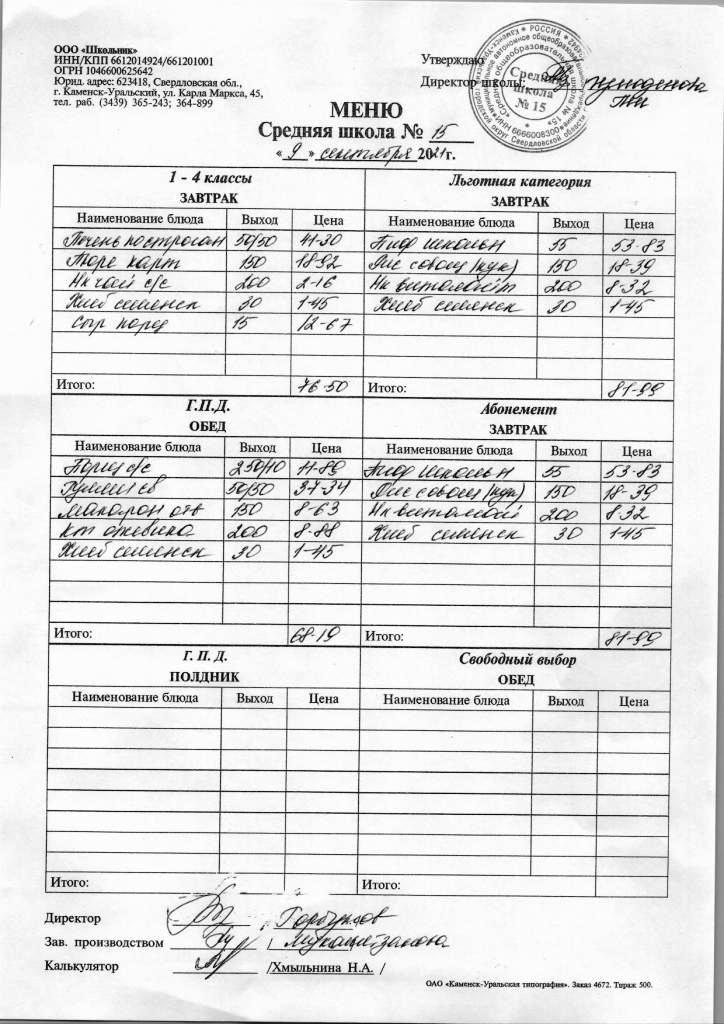 ООО «Школьник»
ИНН/КПП 6612014924/661201001
ОГРН 1046600625642
Юрид. адрес: 623418, Свердловская обл.,
г. Каменск-Уральский, ул. Карла Маркса, 45,
тел. раб. (3439) 365-243; 364-899
Утверждаю
Директор школы:
Средняя
школа
№ 15
МЕНЮ
Средняя школа № 15
« 9 » сентября 2021г.
1 - 4 классы
ЗАВТРАК
Наименование блюда Выход Цена
Печень по строган 50/50 41-30
Пюре карт 150 18-92
Нк чай с/с 200 2-16
Хлеб семенск 30 1-45
Сыр порц 15 12-67
Итого: 76-50
Льготная категория
ЗАВТРАК
Наименование блюда Выход Цена
Школьн 55 53-83
Рис с овощ (кук) 150 18-39
Нк витамоит 200 8-32
Хлеб семенск 30 1-45
Итого: 81-99
Г.П.Д.
ОБЕД
Наименование блюда Выход Цена
с/с 250/10 11-89
Гуляш св 50/50 37-34
Макарон отв 150 8-63
Кт ежевика 200 8-88
Хлеб семенск 30 1-45
Итого: 68-19
Абонемент
ЗАВТРАК
Наименование блюда Выход Цена
Школьн 55 53-83
Рис с овощ (кук) 150 18-39
Нк 200 8-32
Хлеб семенск 30 1-45
Итого: 81-99
Г. П. Д.
ПОЛДНИК
Наименование блюда Выход Цена
Итого:
Свободный выбор
ОБЕД
Наименование блюда Выход Цена
Итого:
Директор
Зав. производством
Калькулятор /Хмыльнина Н.А. /
ОАО «Каменск-Уральская типография». Заказ 4672. Тираж 500.